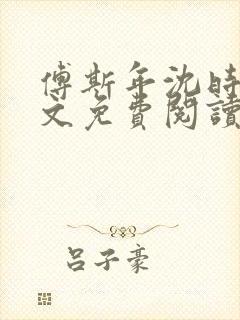 傅斯年沈時
文免費閱讀
呂子豪